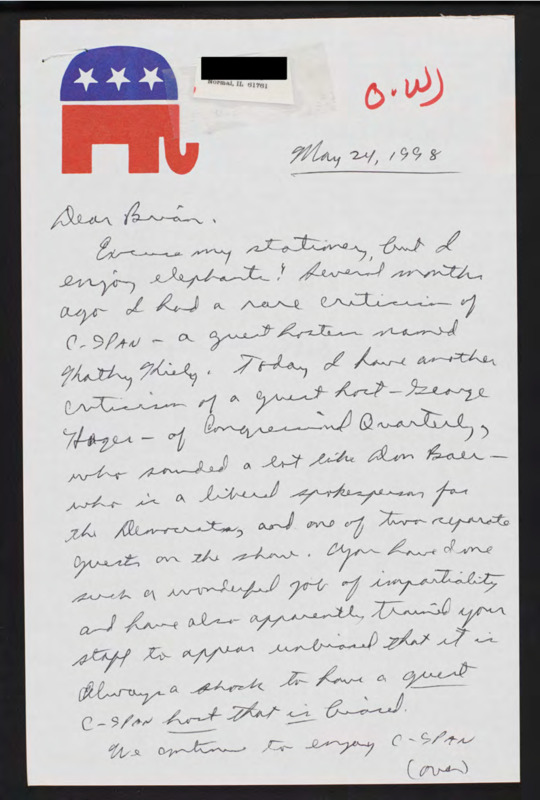 Normal, IL 61761
O.W)
May 24, 1998
Dear Brian.
Excuse my stationery, but I
enjoy elephants! Several months
ago I had a rare criticism of
C-SPAN – a guest hostess named
Kathy Kiely. Today I have another
criticism of a guest host – George
Hager – of Congressional Quarterly,
who sounded a lot like Don Baer –
who is a liberal spokesperson for
the Democrats, and one of two separate
guests on the show. You have done
such a wonderful job of impartiality
and have also apparently trained your
staff to appear unbiased that it is
always a shock to have a guest
C-SPAN host that is biased.
We continue to enjoy C-SPAN
(over)